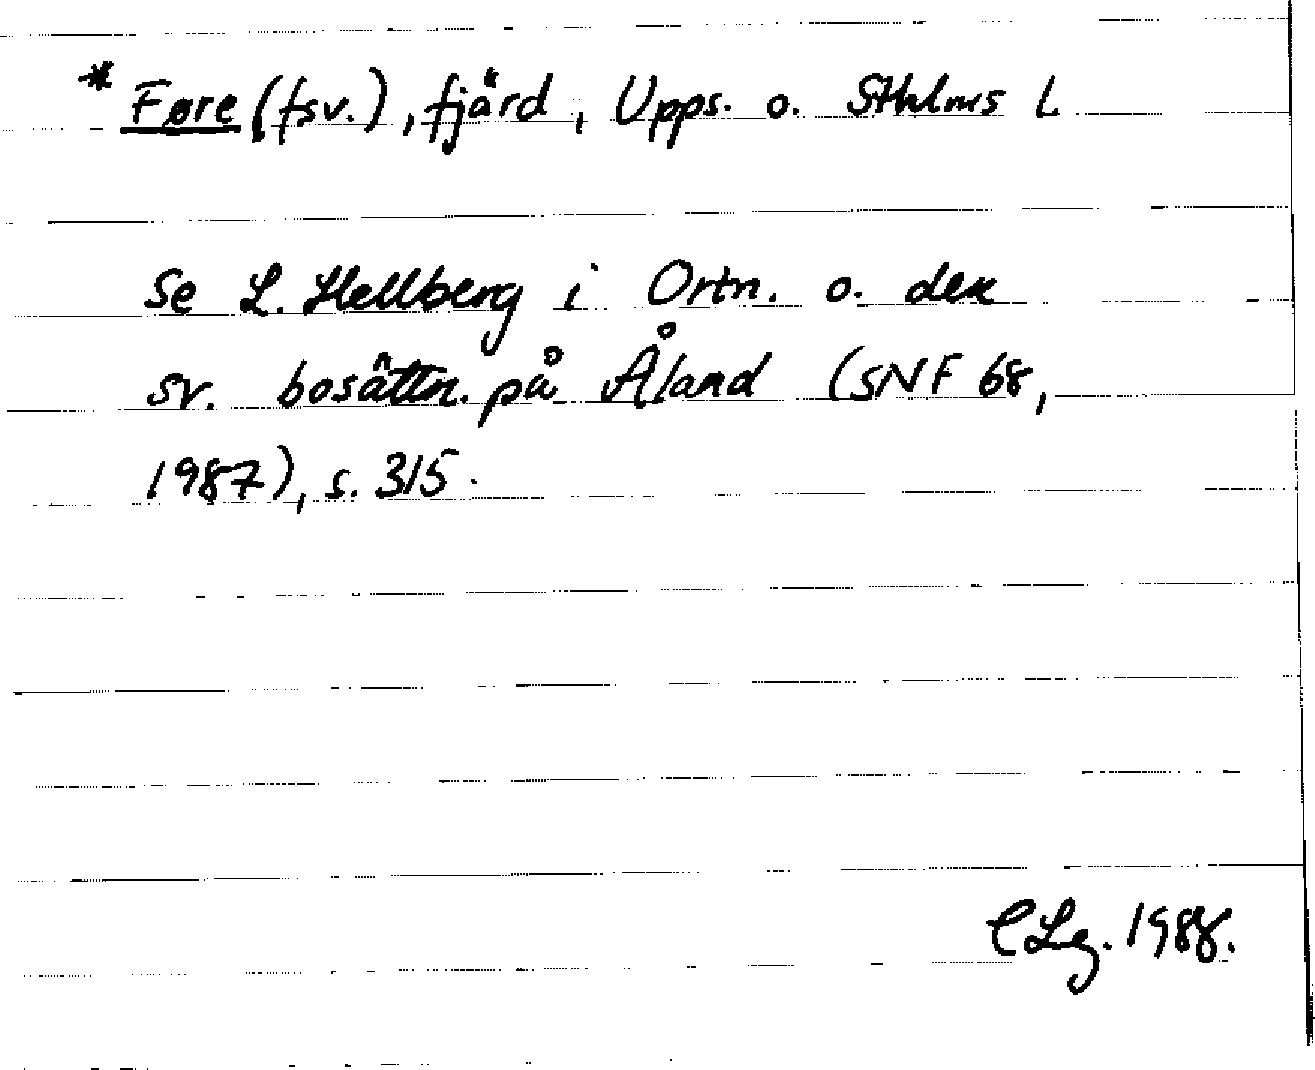 * Føre (fsv.), fjärd, Upps. o. Sthlms L
Se L. Hellberg i Ortn. o. den
sv. bosättn. på Åland (SNF 68,
1987), s. 315.
CLg. 1988.